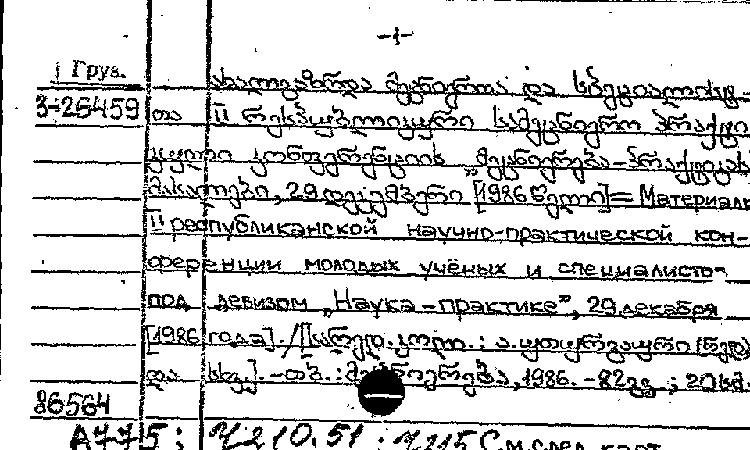 -1-
Груз.
ახალგაზრდა მეცნიერთა და სპეციალისტ-
3-26459 თა II რესპუბლიკური სამეცნიერო პრაქტი
კული კონფერენციის „მეცნიერება-პრაქტიკას
მასალები, 29 დეკემბერი [1986 წელი] = Материалы
II республиканской научно-практической кон-
ференции молодых учёных и специалисто
под девизом „Наука - практике", 29 декабря
[1986 года]. /[სარედ. კოლ.: ა.
და სხვ.]. - თბ.: მეცნიერება, 1986. - 82 გვ.; 20 სმ.
86564
А775; Ч210.51; Ч215 См. след. карт.